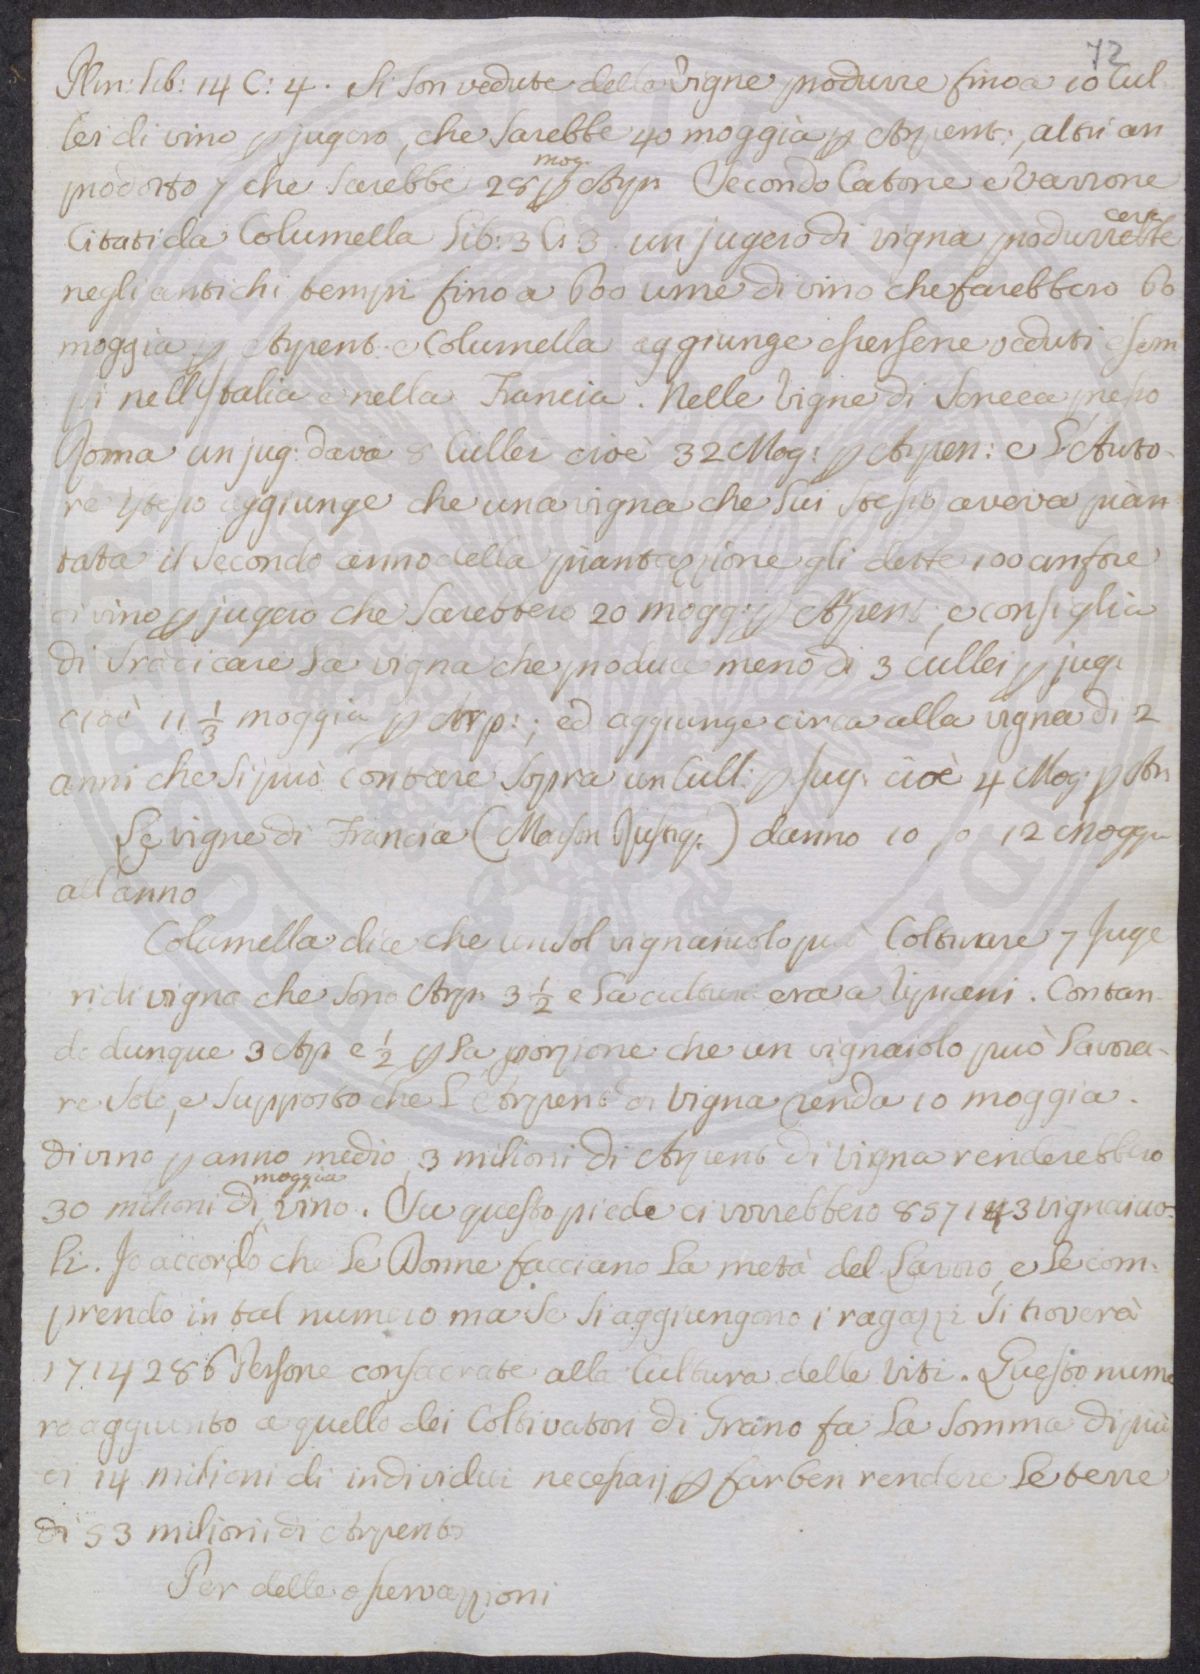 72
Plin: Lib: 14 C: 4. Si son vedute delle Vigne produrre fino a 10 Cul-
lei di vino p jugero, che sarebbe 40 moggia p Arpent:, altri an
prodotto 7 che sarebbe 28 mog. p Arpn Secondo Catone e Varrone
Citati da Columella Lib: 3 C: 3. un jugero di vigna produrrebbe
negli antichi tempi fino a 600 urne di vino che farebbero 60
moggia p Arpent. e Columella aggiunge essersene veduti esem
pi nell'Italia e nella Francia. Nelle Vigne di Seneca presso
Roma un jug: dava 8 Cullei cioè 32 Mog: p Arpen: e L'Auto-
re istesso aggiunge che una vigna che Lui stesso aveva pian
tata il secondo anno della piantazzione gli dette 100 anfore
di vino p jugero che sarebbero 20 mogg: p Arpent, e consiglia
di sradicare La vigna che produce meno di 3 cullei p jug:
cioè 11 1/3 moggia p Arp:; ed aggiunge circa alla vigna di 2
anni che si può contare sopra un Cull: p Jug. cioè 4 Mog: p Arn
Le vigne di Francia (Maison Rustiq:) danno 10, o 12 Moggia
all'anno
Columella dice che un sol vignaiuolo può Coltivare 7 Juge
ri di vigna che sono Arpn 3 1/2 e La cultura era a Lignani. Contan-
do dunque 3 Arp e 1/2 p La porzione che un vignaiolo può Lavora-
re solo, e supposto che L'Arpent di Vigna renda 10 moggia
di vino p anno medio, 3 milioni di Arpent di Vigna renderebbero
30 milioni di moggia vino. Su questo piede ci vorrebbero 857143 vignaiuo-
li. Io accordo che Le Donne facciano La metà del Lavoro, e Le com-
prendo in tal numero ma se si aggiungono i ragazzi si troverà
1714286 Persone consacrate alla Cultura delle Viti. Questo nume
ro aggiunto a quello dei Coltivatori di Grano fa La somma di più
di 14 milioni di individui necessarj p far ben rendere Le terre
di 53 milioni di Arpents
Per delle osservazzioni